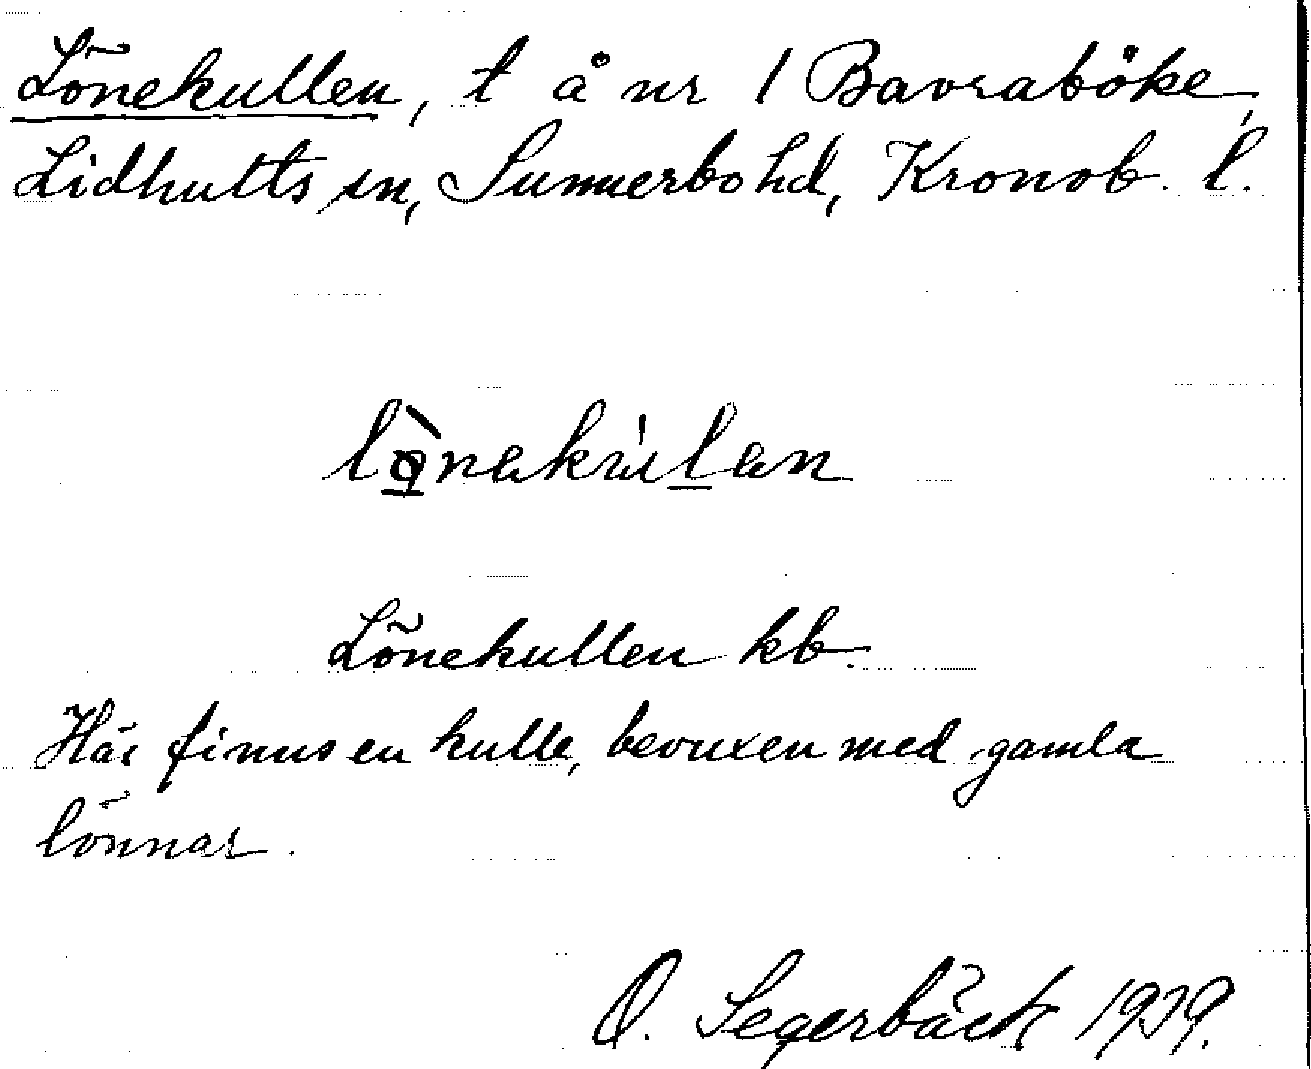 Lönekullen, t å nr 1 Bavraböke,
Lidhults sn, Sunnerbo hd, Kronob. l.
lø̀nəkúlan
Lönekullen kb.
Här finns en kulle, bevuxen med gamla
lönnar.
O. Segerbäck 1939.